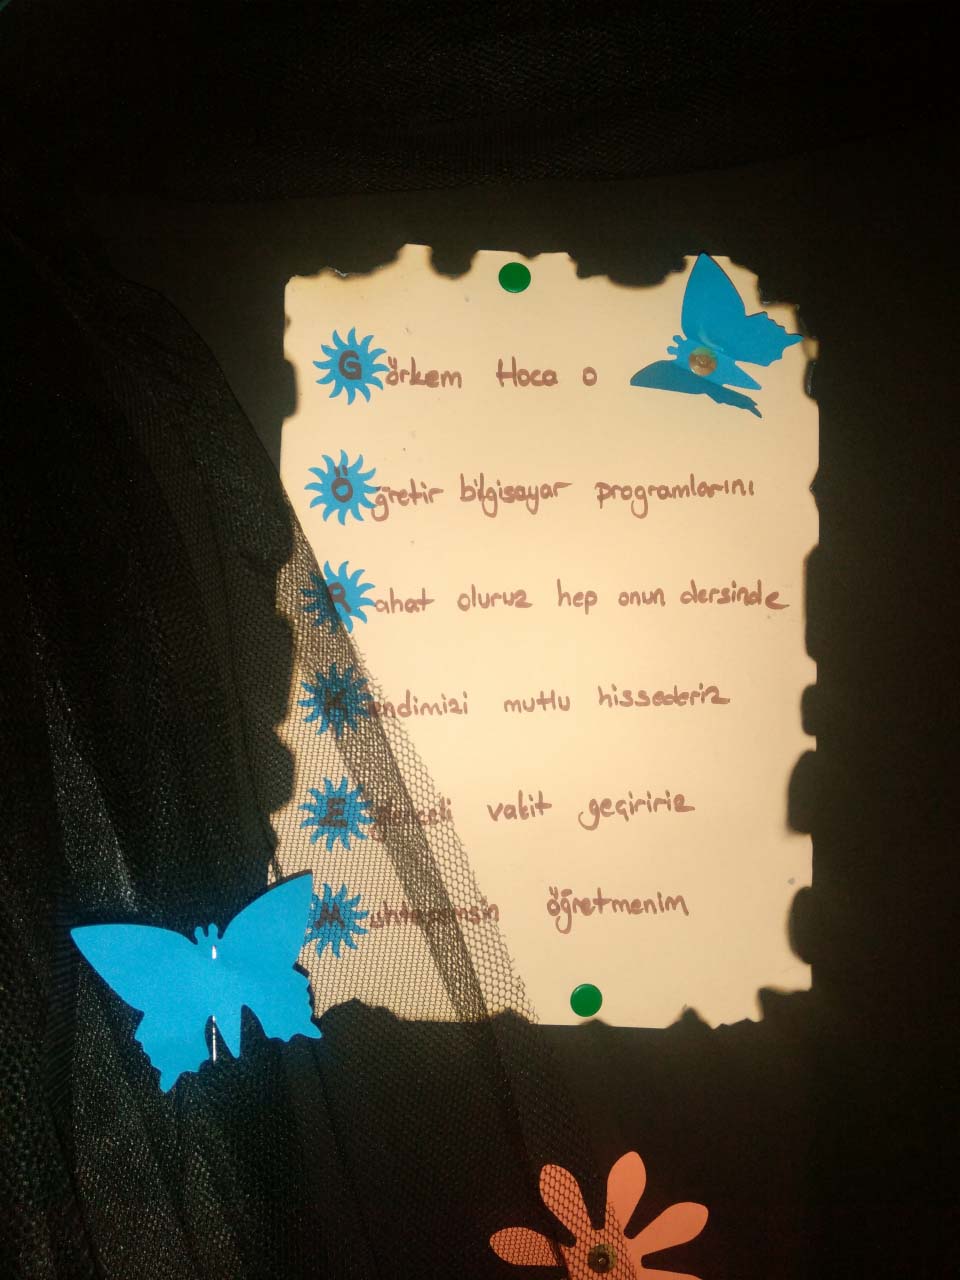 Görkem Hoca o
Öğretir bilgisayar programlarını
Rahat oluruz hep onun dersinde
Kendimizi mutlu hissederiz
Eğlenceli vakit geçiririz
Muhteşemsin öğretmenim